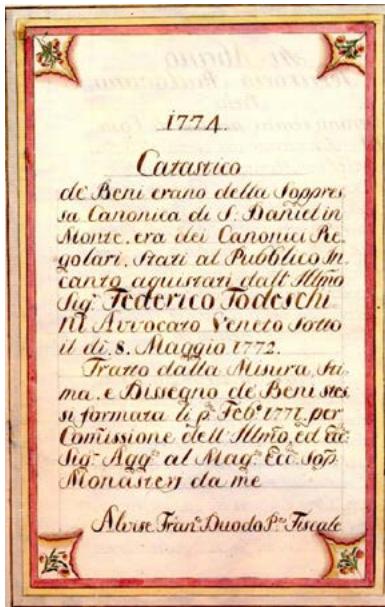 1774.
Catastico
de' Beni erano della Soppres
sa Canonica di S: Daniel in
Monte, era dei Canonici Re,
golari, stati al Pubblico In,
canto aquistati dall' Illmo
Sigr. Federico Todeschi
ni Avvocato Veneto sotto
il dì 8. Maggio 1772.
Tratto dalla Misura, Sti,
ma, e Dissegno de' Beni stes,
si formata li po. Febo. 1771. per
Comissione dell' Illmo, ed
Sigr. Aggo. al Mago. Ecc: sop.
Monasterj da me
Alvise Frano. Duodo Po. Fiscale